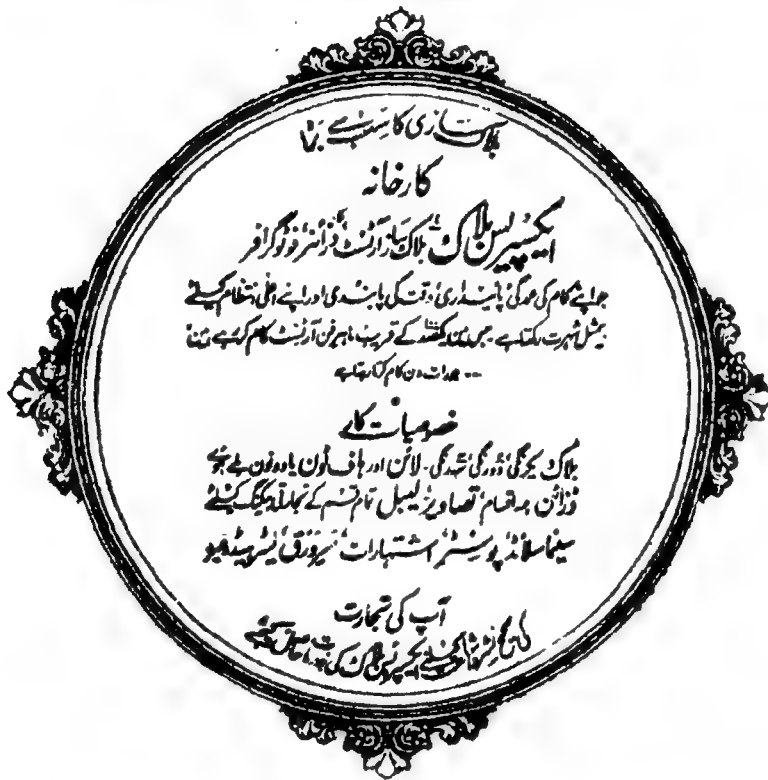 بلاک سازی کا سب سے بڑا
کارخانہ
ایکسپریس بلاک بلاک ساز آرٹسٹ ڈزائنر فوٹوگرافر
جو اپنے کام کی عمدگی پائیداری وقت کی پابندی اور اپنے اعلیٰ انتظام کیلئے
بیمثل شہرت رکھتا ہے جس میں کے قریب ماہر فن آرٹسٹ کام کرتے ہیں
جو رات دن کام کرتا رہتا ہے
خصوصیات کام
بلاک یکرنگی دورنگی سہ رنگی۔ لائن اور ہاف ٹون یا دو ٹون ملے ہوئے
ڈزائن ہمہ اقسام تصاویر لیبل تمام قسم کے پیکنگ کیلئے
سینما سلائڈ پوسٹر اشتہارات سرورق لیٹر ہیڈ وغیرہ
آپ کی تجارت
کی نشر و اشاعت کیلئے ایکسپریس بلاک کی حاصل کیجئے